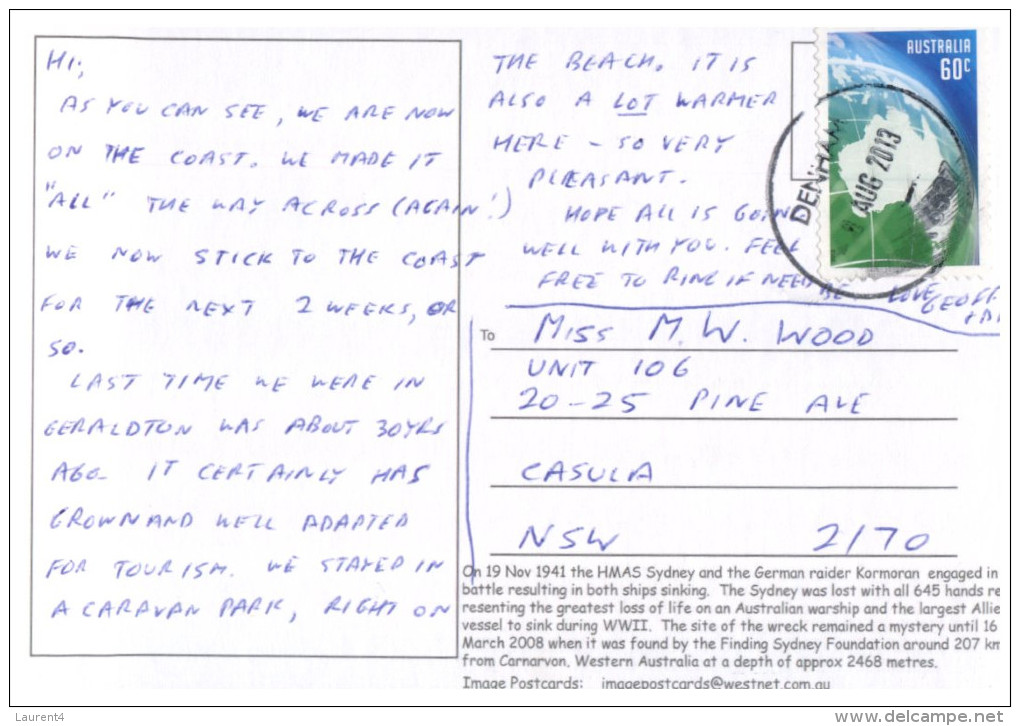 HI,
AS YOU CAN SEE, WE ARE NOW
ON THE COAST. WE MADE IT
"ALL" THE WAY ACROSS (AGAIN!)
WE NOW STICK TO THE COAST
FOR THE NEXT 2 WEEKS, OR
SO.
LAST TIME WE WERE IN
GERALDTON WAS ABOUT 30YRS
AGO. IT CERTAINLY HAS
GROWN AND WELL ADAPTED
FOR TOURISM. WE STAYED IN
A CARAVAN PARK, RIGHT ON
THE BEACH. IT IS
ALSO A LOT WARMER
HERE - SO VERY
PLEASANT.
HOPE ALL IS GOING
WELL WITH YOU. FEEL
FREE TO RING IF NEED BE
LOVE GEOFF
AUSTRALIA
60c
DENHAM
AUG 2013
To MISS M.W. WOOD
UNIT 106
20-25 PINE AVE
CASULA
NSW 2170
On 19 Nov 1941 the HMAS Sydney and the German raider Kormoran engaged in
battle resulting in both ships sinking. The Sydney was lost with all 645 hands re
resenting the greatest loss of life on an Australian warship and the largest Allie
vessel to sink during WWII. The site of the wreck remained a mystery until 16
March 2008 when it was found by the Finding Sydney Foundation around 207 km
from Carnarvon, Western Australia at a depth of approx 2468 metres.
Image Postcards: imagepostcards@westnet.com.au
Laurent4
delcampe.net